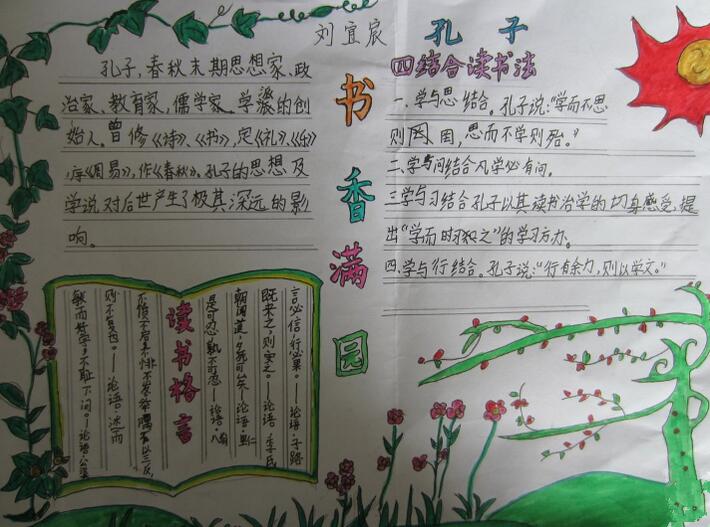 刘宜宸
孔子
书香满园
孔子，春秋末期思想家、政
治家、教育家，儒学家。学派的创
始人。曾修《诗》、《书》，定《礼》、《乐》
，序《周易》，作《春秋》。孔子的思想及
学说对后世产生了极其深远的影
响。
四结合读书法
一.学与思结合。孔子说："学而不思
则罔，思而不学则殆。"
二.学与问结合凡学必有问。
三学与习结合孔子以其读书治学的切身感受，提
出"学而时习之"的学习方
四.学与行结合。孔子说："行有余力，则以学文。"
读书格言
言必信，行必果。——论语·子路
既来之，则安之。——论语·季氏
朝闻道，夕死可矣——论语·里仁
是可忍，孰不可忍——论语·八佾
不愤不启不悱不发举隅不以三反
则不复也。——论语·述而
敏而好学，不耻下问。——论语·公